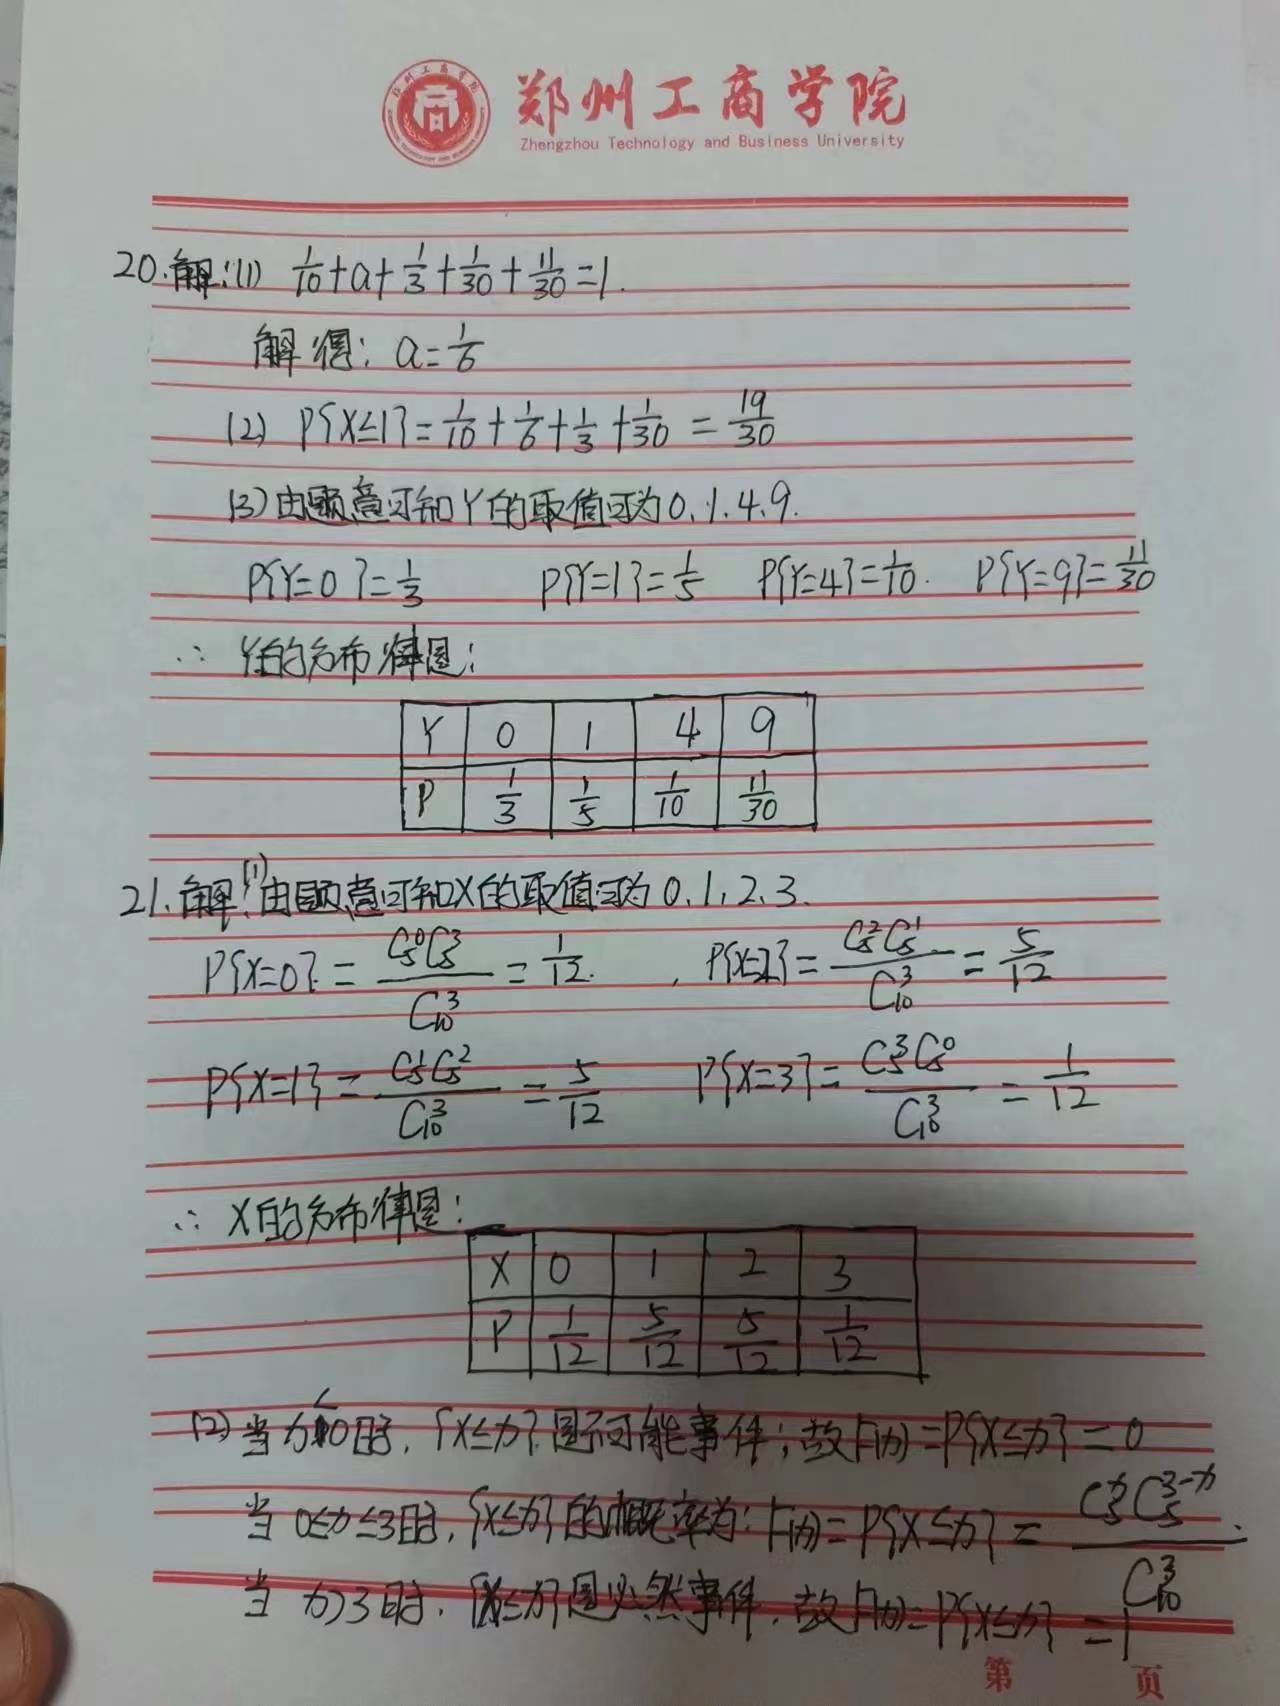 郑州工商学院
Zhengzhou Technology and Business University
20.解:(1) 1/10+a+1/3+1/30+11/30=1.
解得: a=1/6
(2) P{X≤1}=1/10+1/6+1/3+1/30=19/30
(3)由题意可知Y的取值可为0.1.4.9.
P{Y=0}=1/3 P{Y=1}=1/5 P{Y=4}=1/10. P{Y=9}=11/30
∴ Y的分布律是:
Y 0 1 4 9
P 1/3 1/5 1/10 11/30
21.解:(1)由题意可知X的取值可为0.1.2.3.
P{X=0}=C₅⁰C₅³/C₁₀³=1/12. , P{X=2}=C₅²C₅¹/C₁₀³=5/12
P{X=1}=C₅¹C₅²/C₁₀³=5/12 P{X=3}=C₅³C₅⁰/C₁₀³=1/12
∴ X的分布律是:
X 0 1 2 3
P 1/12 5/12 5/12 1/12
(2)当x<0时, {X≤x}是不可能事件;故F(x)=P{X≤x}=0
当0≤x≤3时, {X≤x}的概率为: F(x)=P{X≤x}=C₅ˣC₅³⁻ˣ/C₁₀³.
当x>3时, {X≤x}是必然事件,故F(x)=P{X≤x}=1
第 页